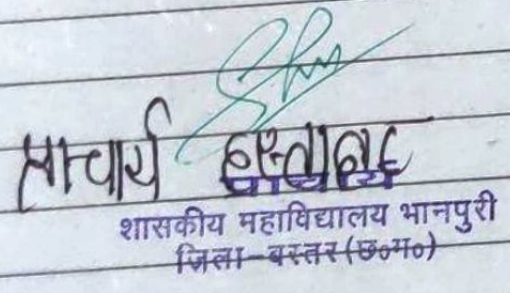 प्राचार्य हस्ताक्षर
प्राचार्य
शासकीय महाविद्यालय भानपुरी
जिला-बस्तर (छ०ग०)